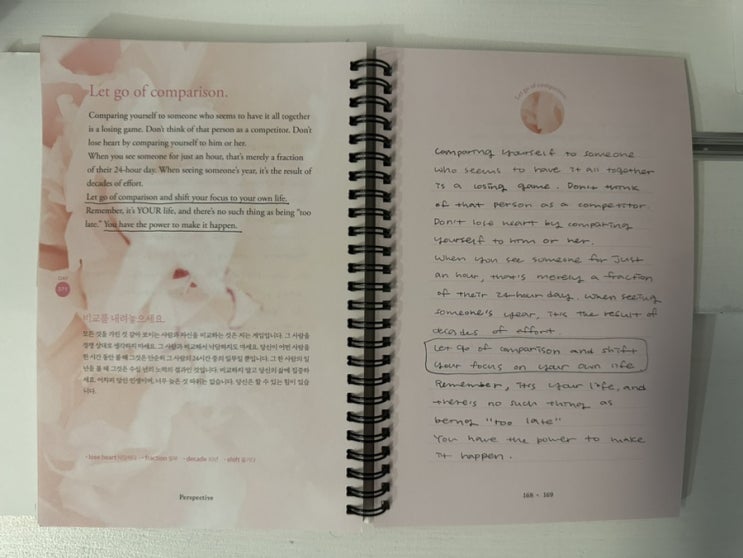 Let go of comparison.
Comparing yourself to someone who seems to have it all together
is a losing game. Don't think of that person as a competitor. Don't
lose heart by comparing yourself to him or her.
When you see someone for just an hour, that's merely a fraction
of their 24-hour day. When seeing someone's year, it's the result of
decades of effort.
Let go of comparison and shift your focus to your own life.
Remember, it's YOUR life, and there's no such thing as being "too
late." You have the power to make it happen.
DAY
비교를 내려놓으세요.
모든 것을 가진 것 같아 보이는 사람과 자신을 비교하는 것은 지는 게임입니다. 그 사람을
경쟁 상대로 생각하지 마세요. 그 사람과 비교해서 낙담하지도 마세요. 당신이 어떤 사람을
한 시간 동안 볼 때 그것은 단순히 그 사람의 24시간 중의 일부일 뿐입니다. 그 한 사람의 일
년을 볼 때 그것은 수십 년의 노력의 결과인 것입니다. 비교하지 말고 당신의 삶에 집중하
세요. 이 당신 인생이며, 너무 늦은 것 따위는 없습니다. 당신은 할 수 있는 힘이 있습
니다.
· lose heart 낙담하다 · fraction 일부 · decade 10년 · shift 옮기다
Perspective
Let go of comparison
Comparing yourself to someone
who seems to have it all together
is a losing game. Don't think
of that person as a competitor.
Don't lose heart by comparing
yourself to him or her.
When you see someone for just
an hour, that's merely a fraction
of their 24-hour day. When seeing
someone's year, it's the result of
decades of effort.
Let go of comparison and shift
your focus on your own life
Remember, it's your life, and
there's no such thing as
being "too late"
You have the power to make
it happen.
168 • 169